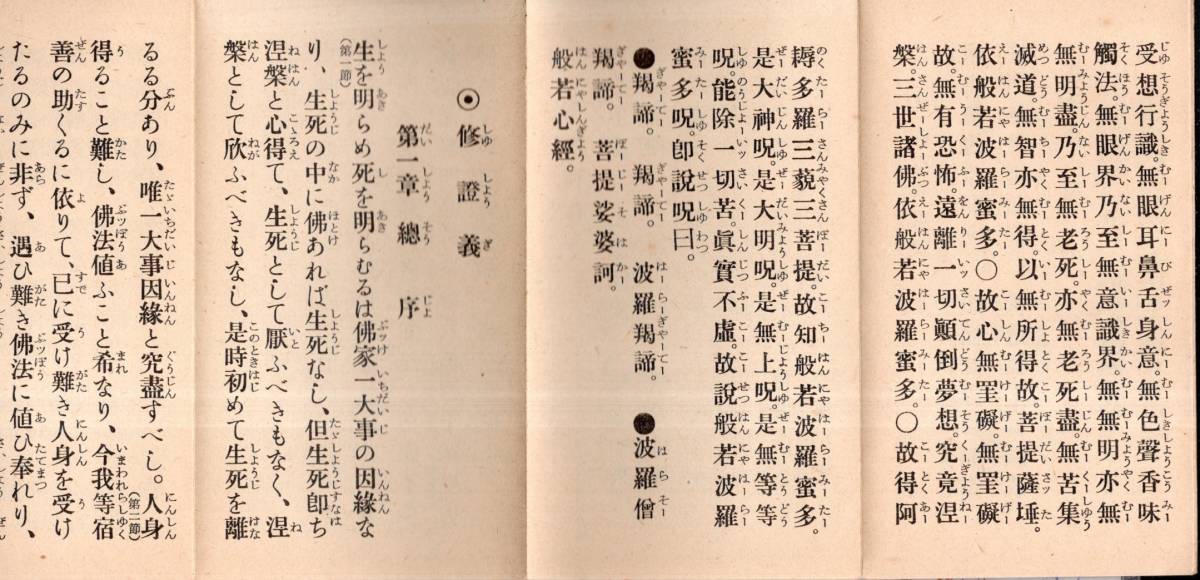 受想行識。無眼耳鼻舌身意。無色聲香味
觸法。無眼界乃至無意識界。無無明亦無
無明盡。乃至無老死。亦無老死盡。無苦集
滅道。無智亦無得。以無所得故。菩提薩埵。
依般若波羅蜜多。〇故心無罣礙。無罣礙
故。無有恐怖。遠離一切顚倒夢想。究竟涅
槃。三世諸佛。依般若波羅蜜多。〇故得阿
耨多羅三藐三菩提。故知般若波羅蜜多。
是大神呪。是大明呪。是無上呪。是無等等
呪。能除一切苦。眞實不虛。故說般若波羅
蜜多呪。卽說呪曰。
羯諦。羯諦。波羅羯諦。波羅僧
羯諦。菩提娑婆訶。
般若心經。
修證義
第一章 總序
(第一節)
生を明らめ死を明らむるは佛家一大事の因緣な
り、生死の中に佛あれば生死なし、但生死卽ち
涅槃と心得て、生死として厭ふべきもなく、涅
槃として欣ふべきもなし、是時初めて生死を離
るる分あり、唯一大事因緣と究盡すべし。人身
(第二節)
得ること難し、佛法値ふこと希なり、今我等宿
善の助くるに依りて、已に受け難き人身を受け
たるのみに非ず、遇ひ難き佛法に値ひ奉れり、